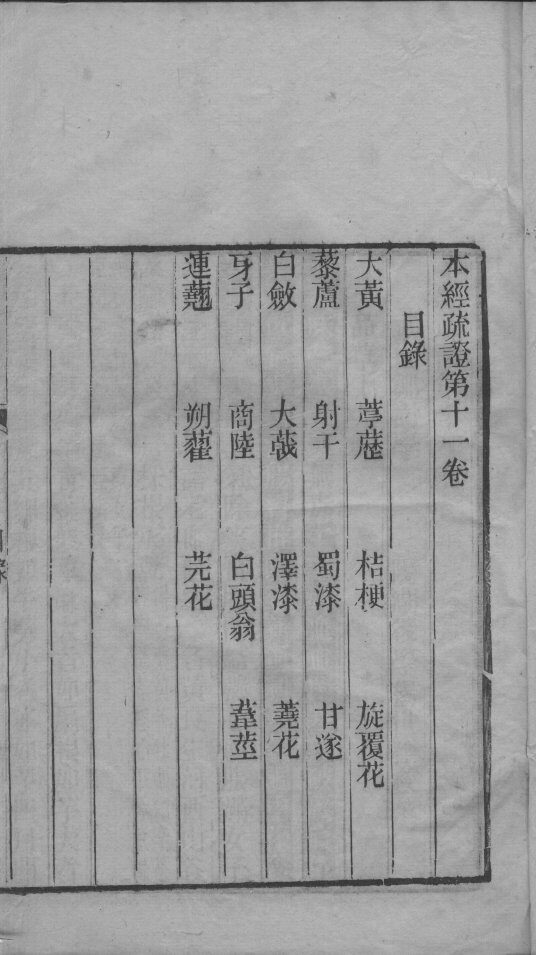 本經疏證第十一卷
目錄
大黃 葶藶 桔梗 旋覆花
藜蘆 射干 蜀漆 甘遂
白斂 大戟 澤漆 蕘花
牙子 商陸 白頭翁 葦莖
連翹 朔藋 芫花